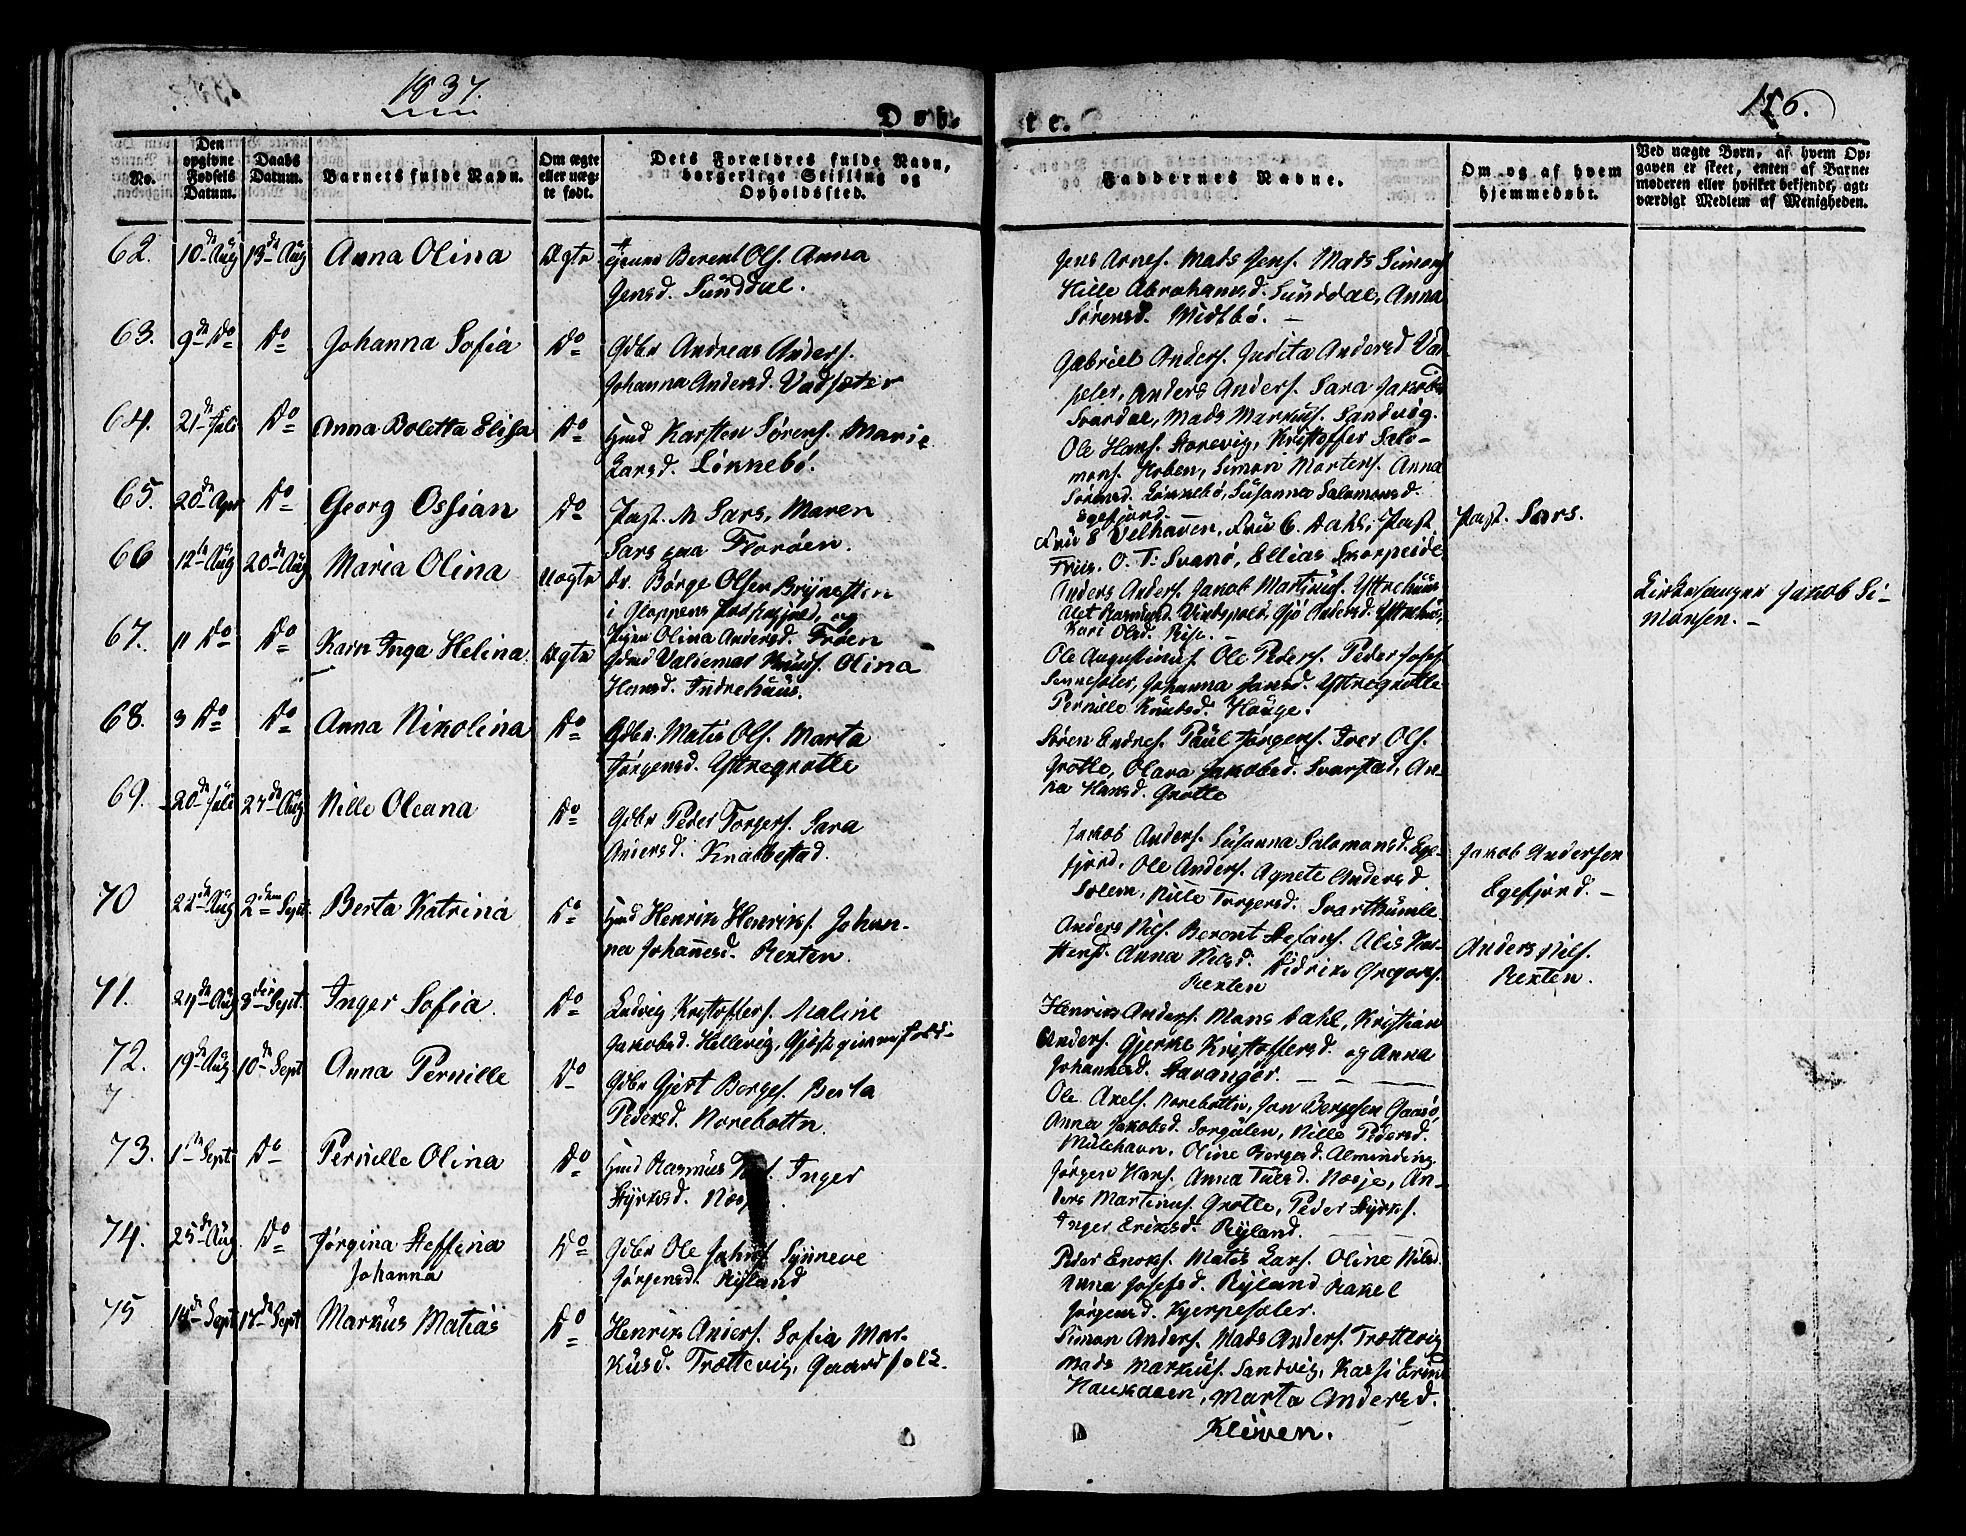 1837.
156.
Døb- te.
No.
Den opgivne Fødsels Datum.
Daabs Datum.
Barnets fulde Navn.
Om ægte eller uægte født.
Dets Forældres fulde Navn, borgerlige Stilling og Opholdssted.
Faddernes Navne.
Om og af hvem hjemmedøbt.
Ved uægte Børn, af hvem Opgaven er skeet, enten af Barnemoderen eller hvilket bekjendt, agtværdigt Medlem af Menigheden.
62. 10de Aug 13de Aug Anna Olina Ægte Berent Ols. Anna
Jensd. Sunddal.
Jens Arnes. Mads Jens. Mads Simons
Hille Abrahamsd. Sunddal, Anna
Sørensd. Midtbö. –
63. 9de Do Do Johanna Sofia Do Gdbr Andreas Anders.
Johanna Andersd. Vadsæter
Gabriel Anders. Judita Andersd Vad-
sæter, Anders Anders. Sara Jakobsd
Svardal, Mads Markus. Sandvig.
64. 21de Juli Do Anna Boletta Elisa Do Hmd Karsten Sørens. Marie
Larsd. Lönnebö.
Ole Hans. Storevig, Kristoffer Salo-
mons. Hoben, Simon Mortens. Anna
Sørensd. Lönnebö, Susanna Salomonsd.
Egefjord.
65. 20de Apr Do Georg Ossian Do Past. M Sars, Maren
Sars paa Florøen.
Fru E Velhaven, Fru C. Dahl, Past
Friis. O. T. Svanö, Ellias Skorpeide
Past. Sars.
66 12te Aug 20de Aug Maria Olina Uægte Børge Olsen Brynesten
i Gloppens Præstegjeld, og
Pigen Olina Andersd. Frøen
Anders Anders. Jakob Martinus. Yttrehuus
Kari Olsd. Rise. –
Kirkesanger Jakob Si-
monsen. –
67. 11 Do Do Karn Inga Helina Ægte Gdbr Valdemar Knuds. Olina
Hansd. Indrehuus.
Ole Augustinus. Ole Peders. Peder Josef.
Sennesæter, Johanna Jansd. Yttregrotle
Pernille Knutsd. Hauge.
68. 3 Do Do Anna Nikolina Do Gdbr. Matis Ols. Marta
Jørgensd. Yttregrotle
Sören Endres. Paul Jørgens. Iver Ols.
Grotle, Olava Jakobsd. Svarstad, An-
na Hansd. Grotle
69. 20de Juli 27de Aug Nille Oleana Do Gdbr Peder Torgers. Sara
Andersd. Knabbestad.
Jakob Anders. Susanna Salomonsd. Ege-
fjord, Ole Anders. Agnete Andersd
Solem, Nille Torgersd. Svarthumle.
Jakob Andersen
Egefjord. –
70 22de Aug 2den Sept. Berta Katrina Do Hmd Henrik Henriks. Johan-
na Johannesd. Rexten.
Anders Nils. Berent Stefans. Alis Kar-
stensd. Anna Nilsd. Didrik Gregors.
Rexten
Anders Nils.
Rexten.
71. 24de Aug 3die Sept. Inger Sofia. Do Ludvig Kristoffers. Maline
Jakobsd. Hellevig,
Henrik Anders. Mons Dahl, Kristian
Anders. Gjerke Kristoffersd. og Anna
Johannesd. Stavanger.
72. 19de Aug 10de Sept Anna Pernille Do Gdbr Gjert Borges. Berta
Pedersd. Norebottn.
Ole Axels. Norebottn, Jon Bergesen Gaasö,
Anna Jakobsd. Sorgulen, Nille Pedersd.
Mulehavn, Oline Borgesd. Almending
73. 1ste Sept. Do Pernille Olina Do Hmd Rasmus Inger
Styrksd.
Jørgen Hans. Anna Tuesd. Nosje, An-
ders Martinus. Grotle, Peder Styrks.
Inger Eriksd. Ryland.
74. 25de Aug Do Jørgina Steffina
Johanna
Do Gdbr Ole Johns Synneve
Jørgensd. Ryland
Peder Enoks. Matis Lars. Oline Nilsd
Anna Josefsd. Ryland Rakel
Jørgensd. Kjerpesæter.
75 14de Sept 17de Sept Markus Matias Do Henrik Anders. Sofia Mar-
kusd. Trottevig, Gaardfolk.
Simon Anders. Mads Anders. Trottevig
Mads Markus. Sandvig,
Marta Andersd.
Kleiven.